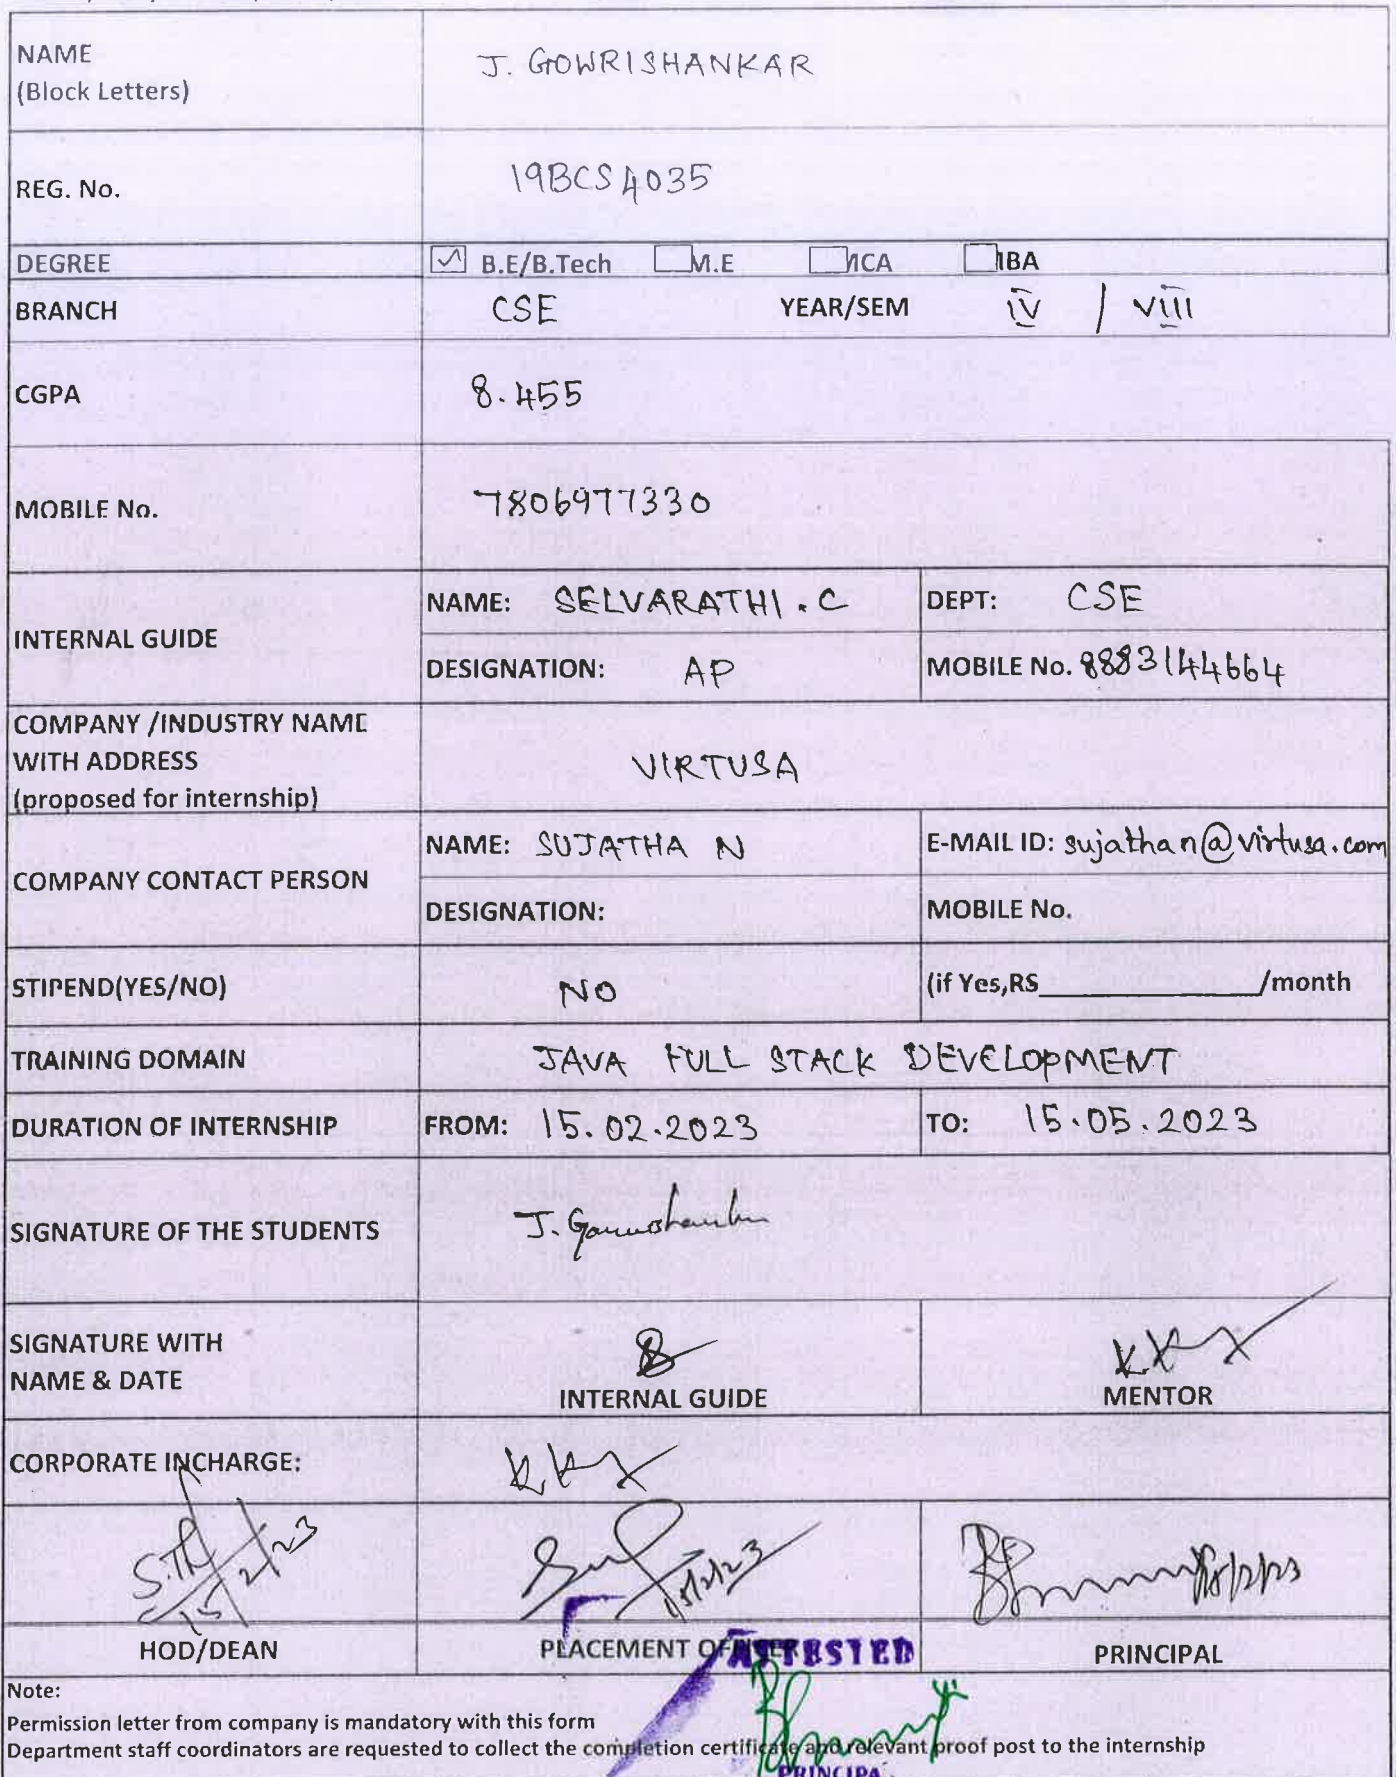 NAME
(Block Letters)
J. GOWRISHANKAR
REG. No.
19BCS4035
DEGREE
B.E/B.Tech M.E MCA MBA
BRANCH
CSE YEAR/SEM IV / VIII
CGPA
8.455
MOBILE No.
7806977330
INTERNAL GUIDE
NAME: SELVARATHI.C DEPT: CSE
DESIGNATION: AP MOBILE No. 8883144664
COMPANY /INDUSTRY NAME
WITH ADDRESS
(proposed for internship)
VIRTUSA
COMPANY CONTACT PERSON
NAME: SUJATHA N E-MAIL ID: sujathan@virtusa.com
DESIGNATION: MOBILE No.
STIPEND(YES/NO)
NO (if Yes,RS /month
TRAINING DOMAIN
JAVA FULL STACK DEVELOPMENT
DURATION OF INTERNSHIP
FROM: 15.02.2023 TO: 15.05.2023
SIGNATURE OF THE STUDENTS
J. Gowrishankar
SIGNATURE WITH
NAME & DATE
INTERNAL GUIDE
MENTOR
CORPORATE INCHARGE:
15/2/23
15/2/23
HOD/DEAN
PLACEMENT OFFICER
PRINCIPAL
ATTESTED
Note:
Permission letter from company is mandatory with this form
Department staff coordinators are requested to collect the completion certificate and relevant proof post to the internship